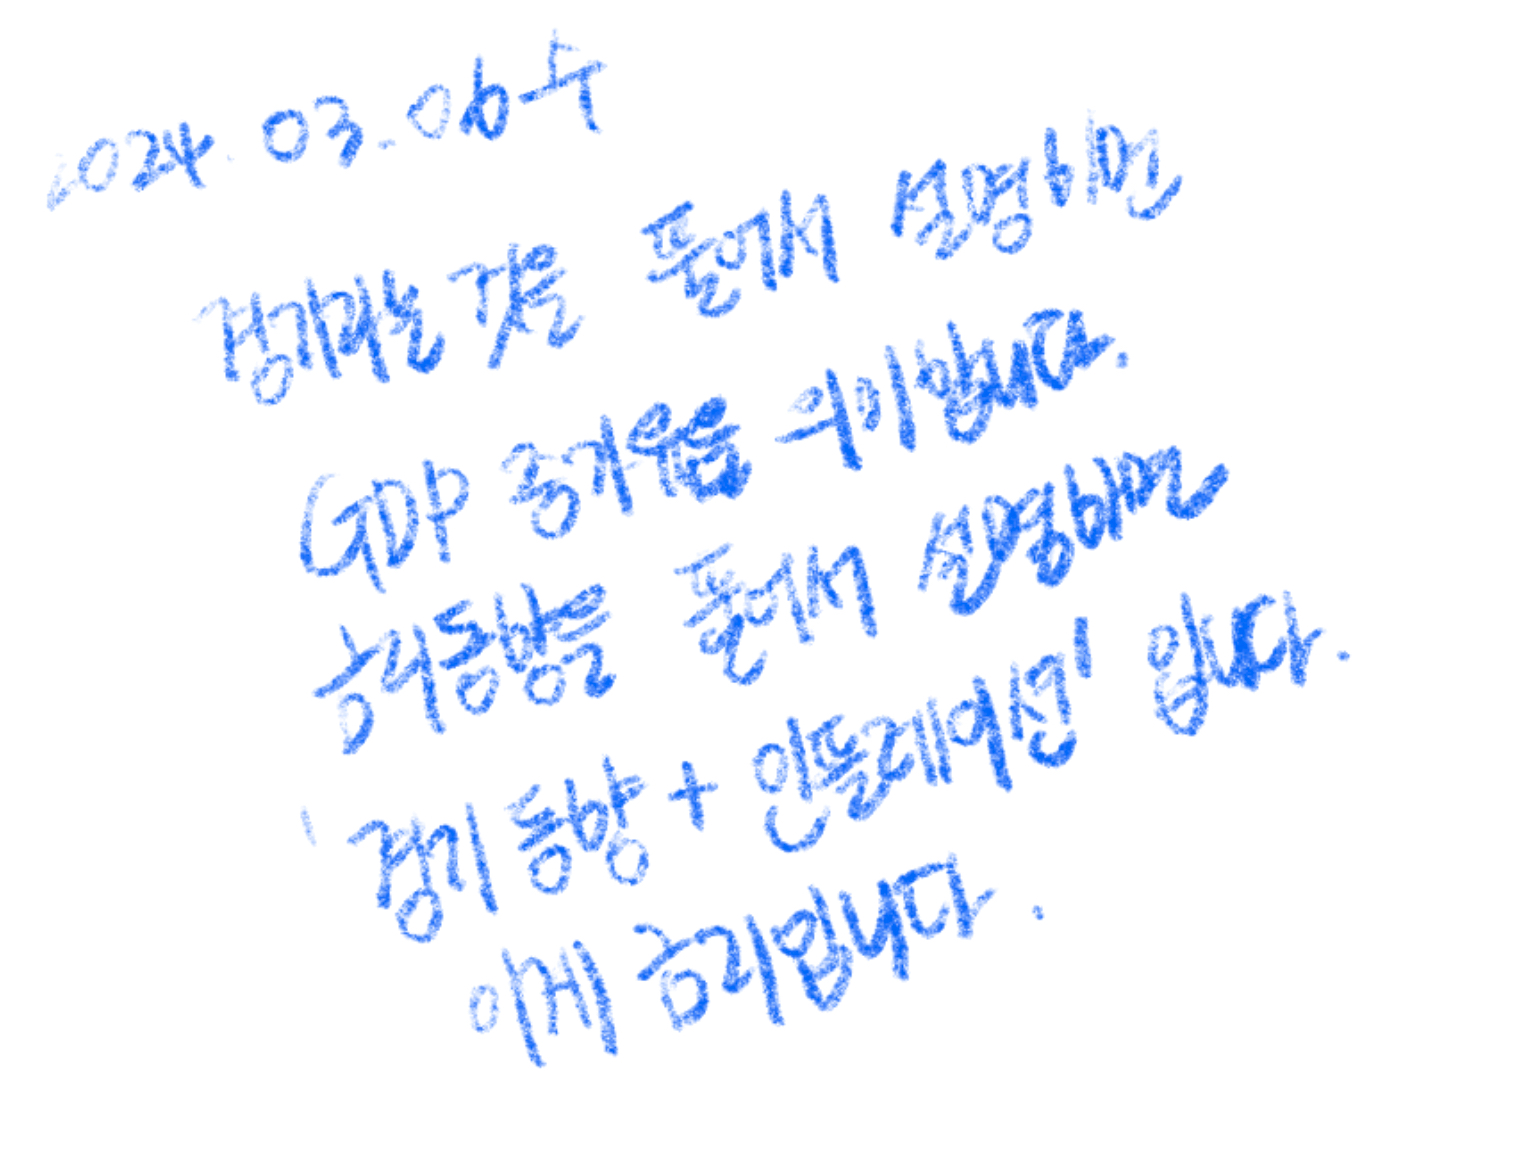 2024. 03. 06 수
경기라는 것을 풀어서 설명하면
GDP 증가율을 의미합니다.
금리동향을 풀어서 설명하면
'경기 동향 + 인플레이션' 입니다.
이게 금리입니다.